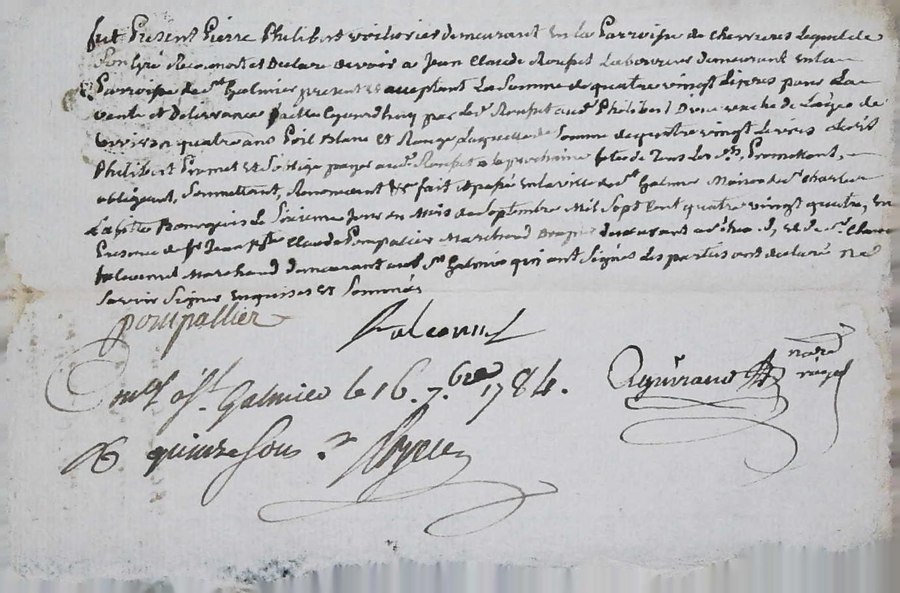 fut Present Pierre Philibert voiturier demeurant en la Parroisse de chevrieres Lequel de
Son Gré Reconoit et Declare devoir a Jean Claude Roufet Laboureur demeurant en la
Parroisse de st Galmier present et acceptant La Somme de quatre vingt Livres pour La
vente et Delivrance faitte cejourdhuy par led. Roufet aud. Philibert D'une vache de L'age de
environ quatre ans Poil Blanc et Rouge Laquelle de Somme de quatre vingt Livres led.
Philibert Promet et S'oblige payer aud. Roufet a la prochaine fete de Tous Les Sts, Promettant,
obligeant, Soumettant, Renoncant &c fait et passé en la ville de st Galmier Maison de sr charles
Bourgeois Le Seizieme Jour du Mois de Septembre Mil Sept Cent quatre vingt quatre, en
Presence de sr Jean Bte Claude Pompallier Marchand Drapier demeurant et de sr Claude
falconnet Marchand demeurant aud. st Galmier qui ont Signés Les parties ont declaré ne
Savoir Signer Enquises et Sommées
pompallier
falconnet
notre
royal
Cm̃lé a st. Galmier le 16. 7.bre 1784.
R quinze Sous